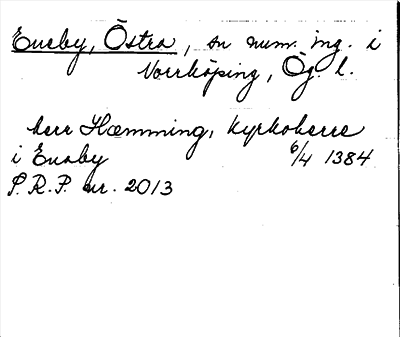 Eneby, Östra, sn num. ing. i
Norrköping, Ög. l.
herr Hæmming, kyrkoherre
i Enæby 6/4 1384
S.R.P. nr. 2013